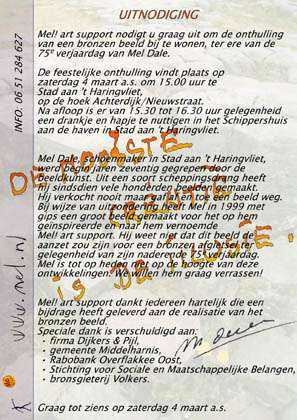 UITNODIGING
Mel! art support nodigt u graag uit om de onthulling
van een bronzen beeld bij te wonen, ter ere van de
75e verjaardag van Mel Dale.
De feestelijke onthulling vindt plaats op
zaterdag 4 maart a.s. om 15.00 uur te
Stad aan 't Haringvliet,
op de hoek Achterdijk/Nieuwstraat.
Na afloop is er van 15.30 tot 16.30 uur gelegenheid
een drankje en hapje te nuttigen in het Schippershuis
aan de haven in Stad aan 't Haringvliet.
Mel Dale, schoenmaker in Stad aan 't Haringvliet,
werd begin jaren zeventig gegrepen door de
beeldkunst. Uit een soort scheppingsdrang heeft
hij sindsdien vele honderden beelden gemaakt.
Hij verkocht nooit maar gaf wel eens een beeld weg.
Bij wijze van uitzondering heeft Mel in 1999 met
gips een groot beeld gemaakt voor het op hem
geïnspireerde en naar hem vernoemde
Mel! art support. Hij weet niet dat dit beeld de
aanzet zou zijn voor een bronzen beeld ter
gelegenheid van zijn naderende 75e verjaardag.
Mel is tot op heden niet op de hoogte van deze
ontwikkelingen. We willen hem graag verrassen!
Mel! art support dankt iedereen hartelijk die een
bijdrage heeft geleverd aan de realisatie van het
bronzen beeld.
Speciale dank is verschuldigd aan:
• firma Dijkers & Pijl,
• gemeente Middelharnis,
• Rabobank Overflakkee Oost,
• Stichting voor Sociale en Maatschappelijke Belangen,
• bronsgieterij Volkers.
Graag tot ziens op zaterdag 4 maart a.s.
INFO: 06 51 284 627
www.mel.nl
DE MOOISTE
IS DE